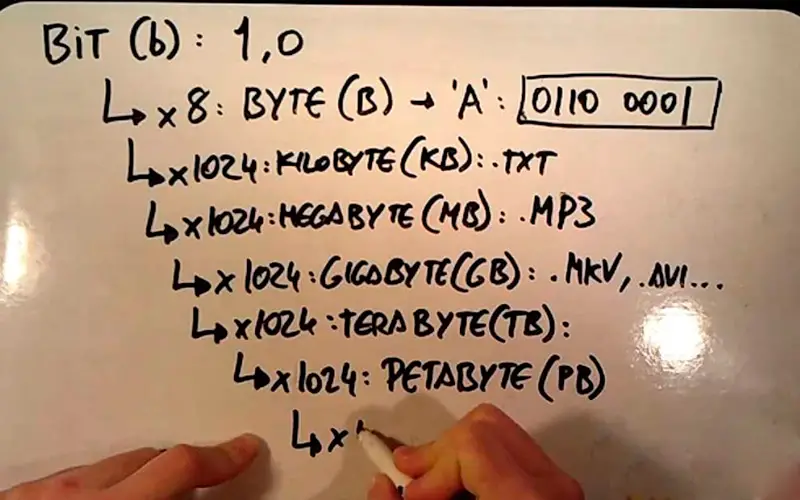 BiT (b): 1,0
↳ x 8: BYTE (B) → 'A': 0110 0001
↳ x1024: KILOBYTE (KB): .TXT
↳ x1024: MEGABYTE (MB): .MP3
↳ x1024: GIGABYTE (GB): .MKV, .AVI...
↳ x1024: TERABYTE (TB):
↳ x1024: PETABYTE (PB)
↳ x